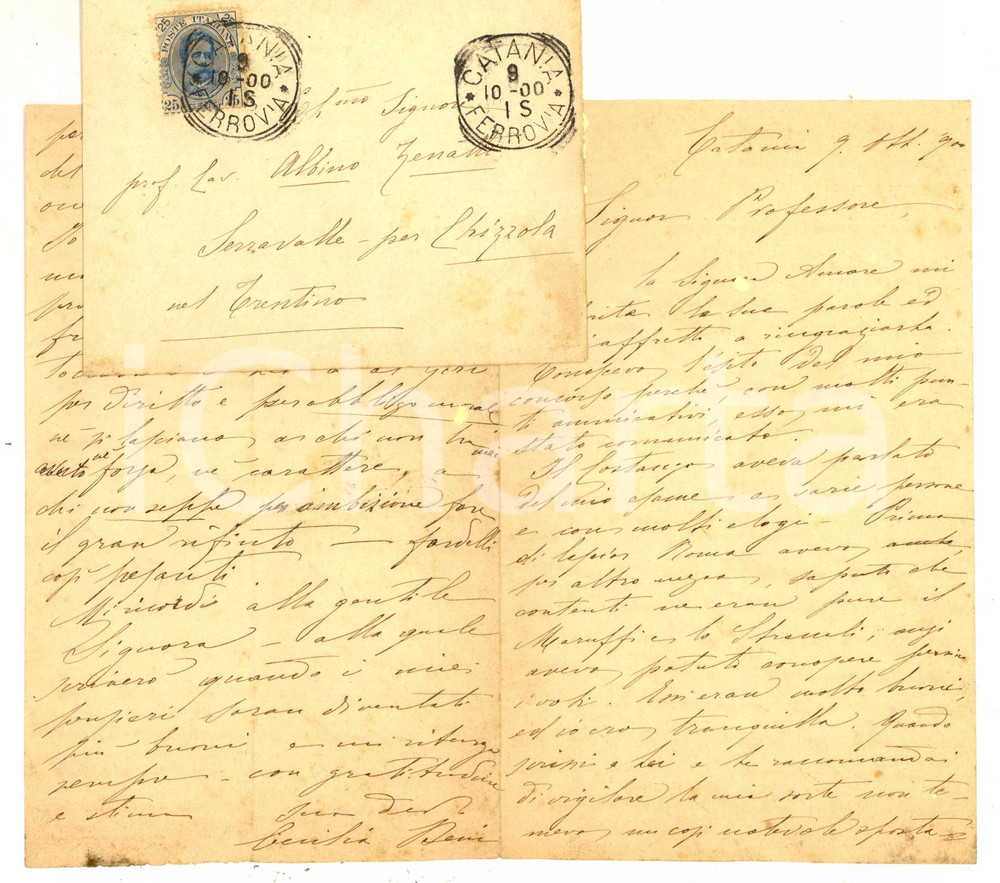 25 25
POSTE ITALIANE
25 25
CATANIA
9
10-00
1S
* FERROVIA *
CATANIA
9
10-00
1S
* FERROVIA *
Signor
prof. Cav. Albino Zenatti
Serravalle - per Chizzola
nel Trentino
iCharta
Catania 9. Ott. 900
Signor Professore,
la Signora Amore mi
le sue parole ed
affretto a ringraziarla.
Conoscevo l'esito del mio
concorso perchè, con molti pun-
ti ammirativi, esso mi era
stato comunicato.
Il Costanzo aveva parlato
del mio esame a varie persone
e con molti elogi - Prima
di lasciar Roma avevo anche,
per altro mezzo, saputo che
contenti ne eran pure il
Maruffi e lo Straccali; anzi
avevo potuto conoscere persino
i voti. Essi eran molto buoni,
ed io ero tranquilla. Quando
scrissi a Lei e le raccomandai
di vigilare la mia sorte non te-
mevo una così notevole sposta-
per
del
pro
per diritto e per obbligo morale
nè si lasciano a chi non ha mai
avuto nè forza, nè carattere, a
chi non seppe per ambizione fare
il gran rifiuto - fardelli
così pesanti.
Mi ricordi alla gentile
Signora - alla quale
scriverò quando i miei
pensieri saran diventati
più buoni e mi ritenga
sempre - con gratitudine
e stima
sua dev.
Cecilia Deni